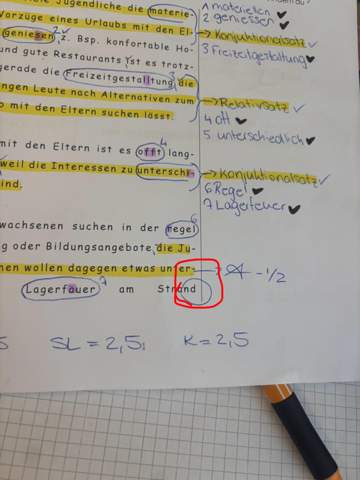 Jugendliche die materie-
Vorzüge eines Urlaubs mit den El-
geniesen z. Bsp. konfortable Ho-
und gute Restaurants ist es trotz-
gerade die Freizeitgestalltung die
ngen Leute nach Alternativen zum
b mit den Eltern suchen lasst.
mit den Eltern ist es offt lang-
weil die Interessen zu unterschi-
ind.
wachsenen suchen in der regel
g oder Bildungsangebote, die Ju-
nen wollen dagegen etwas unter-
Lagerfauer am Strand
1 materiellen
2 geniessen
→ Konjuktionalsatz
3 Freizeitgestaltung
→ Relativsatz
4 oft
5 unterschiedlich
→ Konjuktionalsatz
6 Regel
7 Lagerfeuer
A -1/2
5 SL = 2,5 K = 2,5